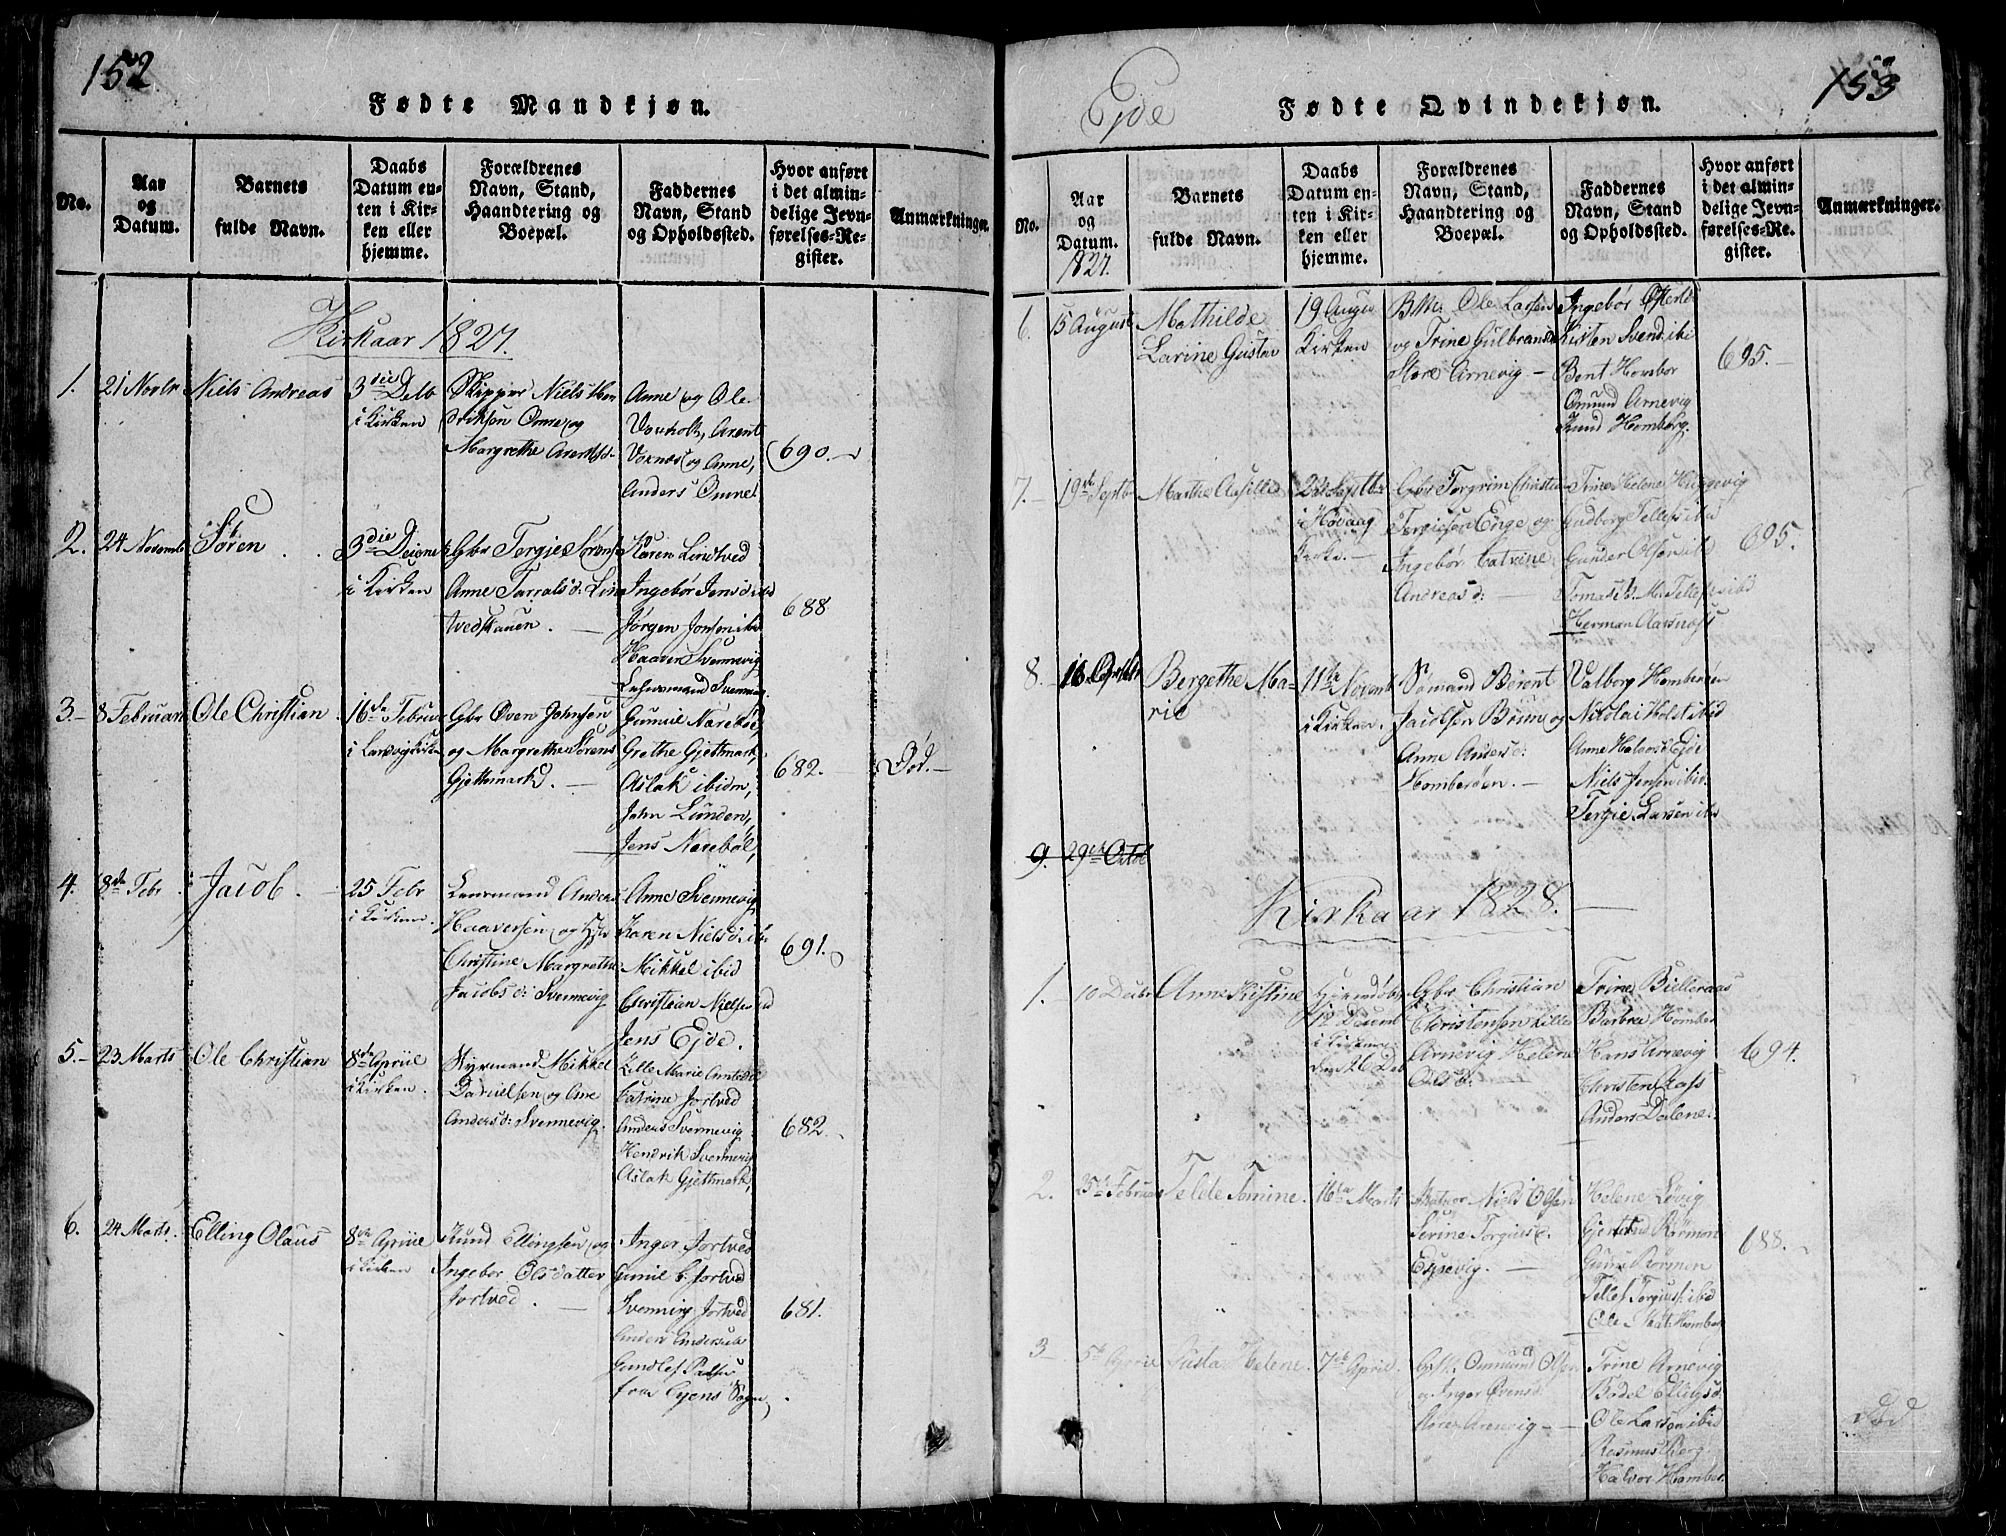 152
Fødte Mandkjøn.
No.
Aar
og
Datum.
Barnets
fulde Navn.
Daabs
Datum en-
ten i Kir-
ken eller
hjemme.
Forældrenes
Navn, Stand,
Haandtering og
Boepæl.
Faddernes
Navn, Stand
og Opholdssted.
Hvor anført
i det almin-
delige Jevn-
førelses-Re-
gister.
Anmærkninger.
Kirkaar 1827.
1.
21 Novbr
Niels Andreas
3die Decb
i Kirken
Skipper Niels Hen
driksen Omre og
Margrethe Arentsd
Anne og Ole
Voxholt, Arent
Voxnæs og Anne,
Anders Omre
690.
2.
24 Novemb
Søren
3die
i Kirken
Gbr Tergie Sørens
Anne Tarralsd: Lin
tvedskauen.
Karen Lindtved
Ingebør Jensd ibid
Jørgen Jonsen ibid
Haaver Svennevig
Svennevig
688
3.
8 Februar
Ole Christian
16de Februar
i
Gbr Øven Johnsen
og Margrethe Sørens
Gjettmark.
Gumil
Grethe Gjettmark,
Aslak ibidm,
John Lunden,
Jens
682.
Død.
4.
8de Febr
Jacob.
25 Febr
i Kirken.
Lensmand Anders
Haaversen og
Christine Margrethe
Jacobsd: Svennevig
Anne Svennevig
Karen Nielsd: ib
Mikkel ibid
Christian Nielsen ibid
Jens Ejde.
691.
5.
23 Marts
Ole Christian
8de Apriil
i Kirken.
Styrmand Mikkel
Danielsen og Ane
Andersd: Svennevig.
Lille Marie
Catrine Jortved
Anders Svennevig
Hendrik Svennevig
Aslak Gjettmark,
682.
6.
24 Marts.
Elling Olaus
8de Apriil
i Kirken
Knud Ellingsen og
Ingebor Olsdatter
Jortved.
Inger Jortved
Gumil b. Jortved
Svenning Jortved
Anders
Gundlef
fra Eyens Sogn
681.
153
Ejde
Fødte Qvindekjøn.
No.
Aar
og
Datum.
1827.
Barnets
fulde Navn.
Daabs
Datum en-
ten i Kir-
ken eller
hjemme.
Forældrenes
Navn, Stand,
Haandtering og
Boepæl.
Faddernes
Navn, Stand
og Opholdssted.
Hvor anført
i det almin-
delige Jevn-
førelses-Re-
gister.
Anmærkninger.
6.
15 August
Mathilde
Larine Gustav
19 Augu
Kirken
Ole Larsen
og Trine Gulbrands
Store Arnevig
Ingebør
Kisten Svend. ibi
Bent
Omund Arnevig
Knud Homborg.
695.
7.
19de Septbr
Marthe
23 Septbr
i Høvaag
Kirke.
Gbr Torgrim Christian
Tergiesen Enge og
Ingebør Catrine
Andreasd:
Trine Helene
Gudborg Tellefs ibid
Gunder Olsen ibd
Tomas
Herman Aarsnæs
695.
8.
16 Octobr
Bergethe Ma-
rie
11te Novemb
i Kirken.
Sømand Berent
Jacobsen Bronn og
Anne Andersd:
Homborøen.
Valborg Homborøen
Nikolai Holst ibid
Anne Halvorsd Ejde
Niels Jensen ibid.
Tergie Larsen ibd
9.
29de Octob
Kirkaar 1828.
1.
10 Decbr
Anne Kistine
Hjemdøbt
12 Decemb
i Kirken
den 26 Deb
Gbr Christian
Christensen Lille
Arnevig Helene
Olsd:
Trine Bielleraas
Barbroe Homber
Hans Arnevig
Christen
Anders Dalene.
694.
2.
25de Februar
Telde Tomine.
16de Marts
Niels Olsen
Serine Torgiusd.
Espevig.
Helene Løvig
Gjertrud Rørmon
Gunu Rørmen
Tellef Torgiuss. ibid
Ole Homber
688.
3
5te April
Susta Helene
7de April.
Ommund Olsen
og Inger Øvensd.
Store Arnevig
Trine Arnevig
Bodel Ellingsd:
Ole Larsen ibid
Rasmus Berg
Halvor Homber.
Død